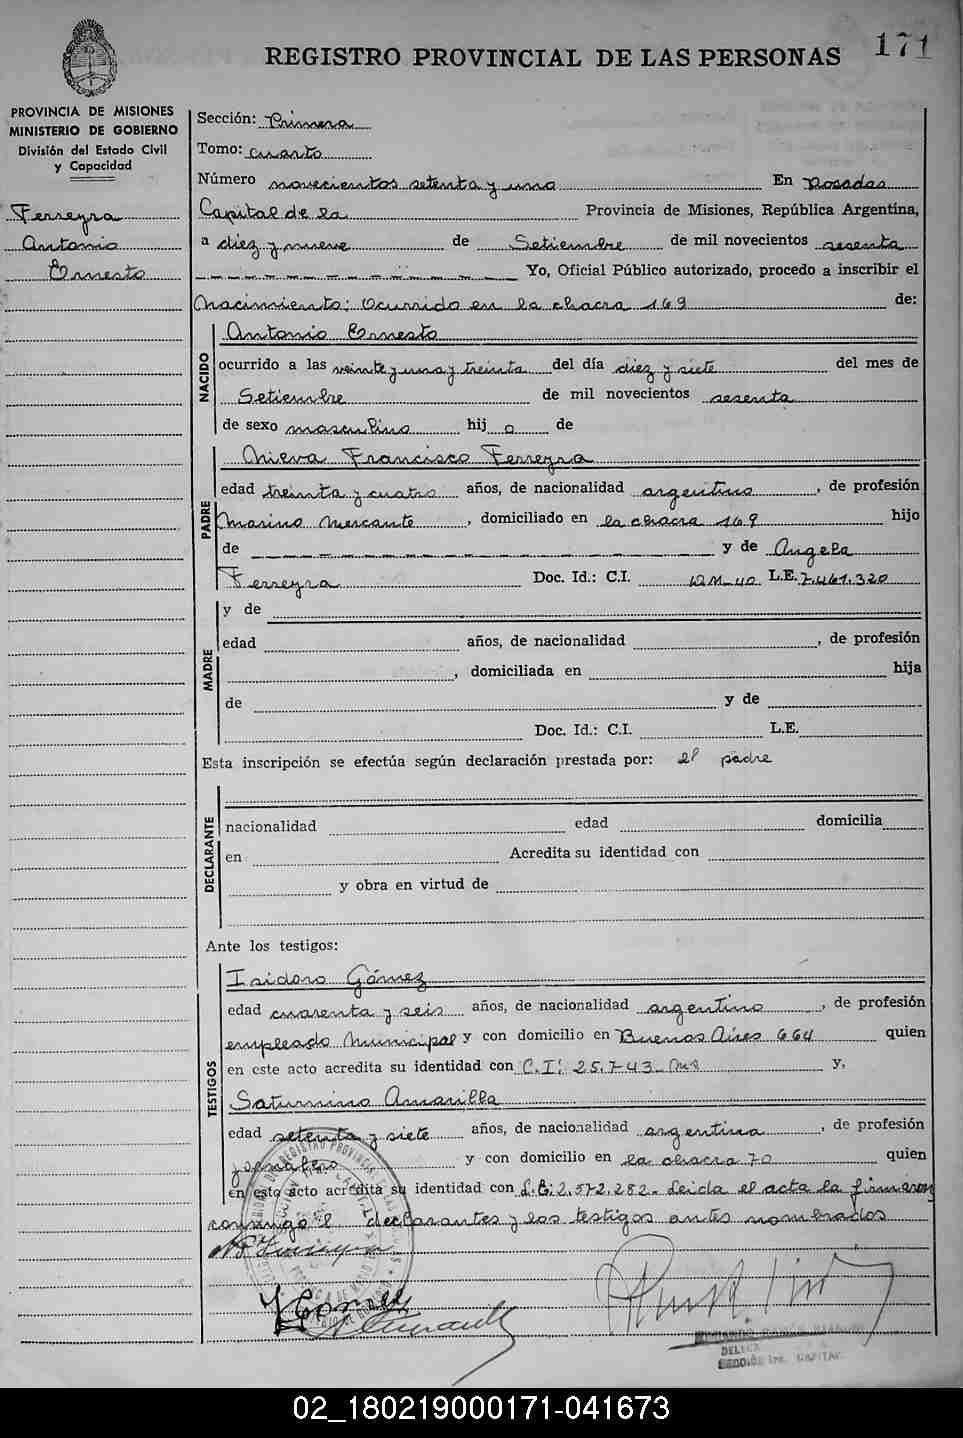 171
REGISTRO PROVINCIAL DE LAS PERSONAS
PROVINCIA DE MISIONES
MINISTERIO DE GOBIERNO
División del Estado Civil
y Capacidad
Ferreyra
Antonio
Ernesto
Sección: Primera
Tomo: cuarto
Número novecientos setenta y uno En Posadas
Capital de la Provincia de Misiones, República Argentina,
a diez y nueve de Setiembre de mil novecientos sesenta
Yo, Oficial Público autorizado, procedo a inscribir el
Nacimiento: Ocurrido en la chacra 169 de:
NACIDO
Antonio Ernesto
ocurrido a las veinte y una y treinta del día diez y siete del mes de
Setiembre de mil novecientos sesenta
de sexo masculino hij o de
PADRE
Nieva Francisco Ferreyra
edad treinta y cuatro años, de nacionalidad argentino, de profesión
Marino Mercante, domiciliado en la chacra 169 hijo
de y de Angela
Ferreyra Doc. Id.: C.I. DM-40 L.E. 7.461.320
MADRE
y de
edad años, de nacionalidad , de profesión
, domiciliada en hija
de y de
Doc. Id.: C.I. L.E.
Esta inscripción se efectúa según declaración prestada por: el padre
DECLARANTE
nacionalidad edad domicilia
en Acredita su identidad con
y obra en virtud de
Ante los testigos:
TESTIGOS
Isidoro Gómez
edad cuarenta y seis años, de nacionalidad argentino, de profesión
empleado Municipal y con domicilio en Buenos Aires 664 quien
en este acto acredita su identidad con C.I: 25.743 y,
Saturnino Amarilla
edad setenta y siete años, de nacionalidad argentina, de profesión
jornalero y con domicilio en la chacra 70 quien
en esto acto acredita su identidad con L.E: 2.572.282. Leida el acta la firmaron
conmigo l declarantes y los testigos antes nombrados
SECCIÓN 1ra. CAPITAL
02_180219000171-041673